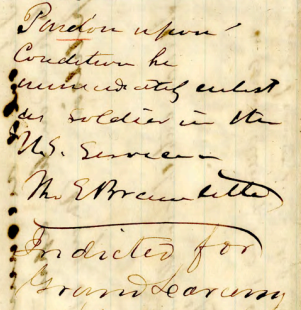 Pardon upon
Condition he
immediately enlist
as soldier in the
U.S. Service -
Tho E Bramlette
Indicted for
Grand Larceny